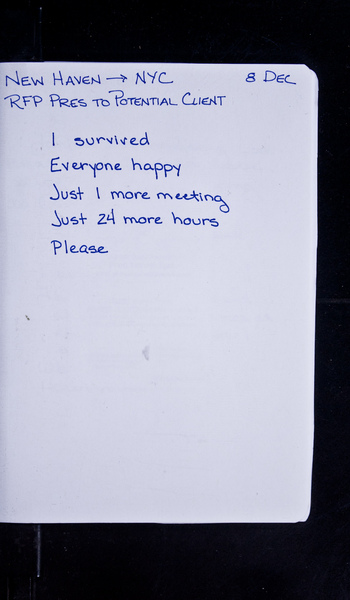 New Haven → NYC 8 Dec
RFP Pres to Potential Client
I survived
Everyone happy
Just 1 more meeting
Just 24 more hours
Please